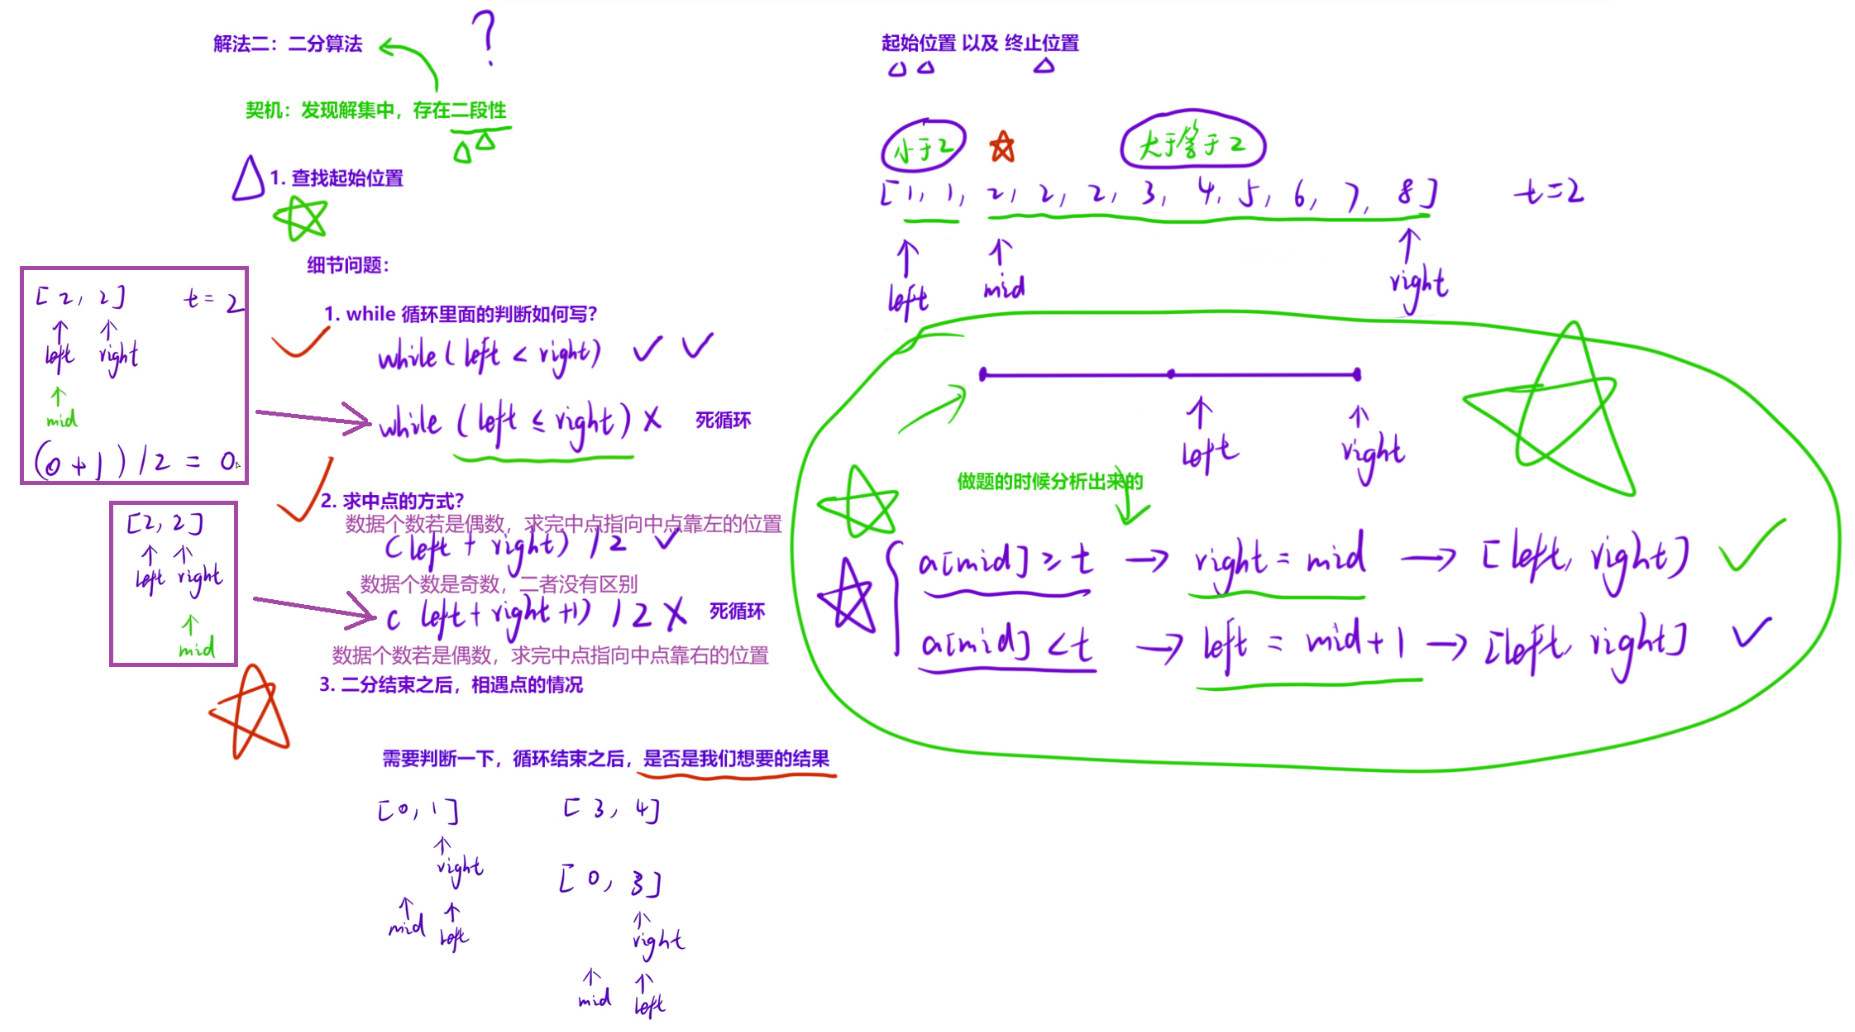 解法二：二分算法
?
契机：发现解集中，存在二段性
1. 查找起始位置
细节问题：
[2, 2] t = 2
left right
mid
(0+1)/2 = 0
1. while 循环里面的判断如何写？
while(left < right)
while (left ≤ right) X 死循环
[2, 2]
left right
mid
2. 求中点的方式？
数据个数若是偶数，求完中点指向中点靠左的位置
(left + right) / 2
数据个数是奇数，二者没有区别
( left + right +1) / 2 X 死循环
数据个数若是偶数，求完中点指向中点靠右的位置
3. 二分结束之后，相遇点的情况
需要判断一下，循环结束之后，是否是我们想要的结果
[0, 1]
right
mid left
[3, 4]
[0, 3]
right
mid left
起始位置 以及 终止位置
小于2 大于等于2
[1, 1, 2, 2, 2, 3, 4, 5, 6, 7, 8] t=2
left mid right
left right
做题的时候分析出来的
a[mid] ≥ t → right = mid → [left, right]
a[mid] < t → left = mid+1 → [left, right]